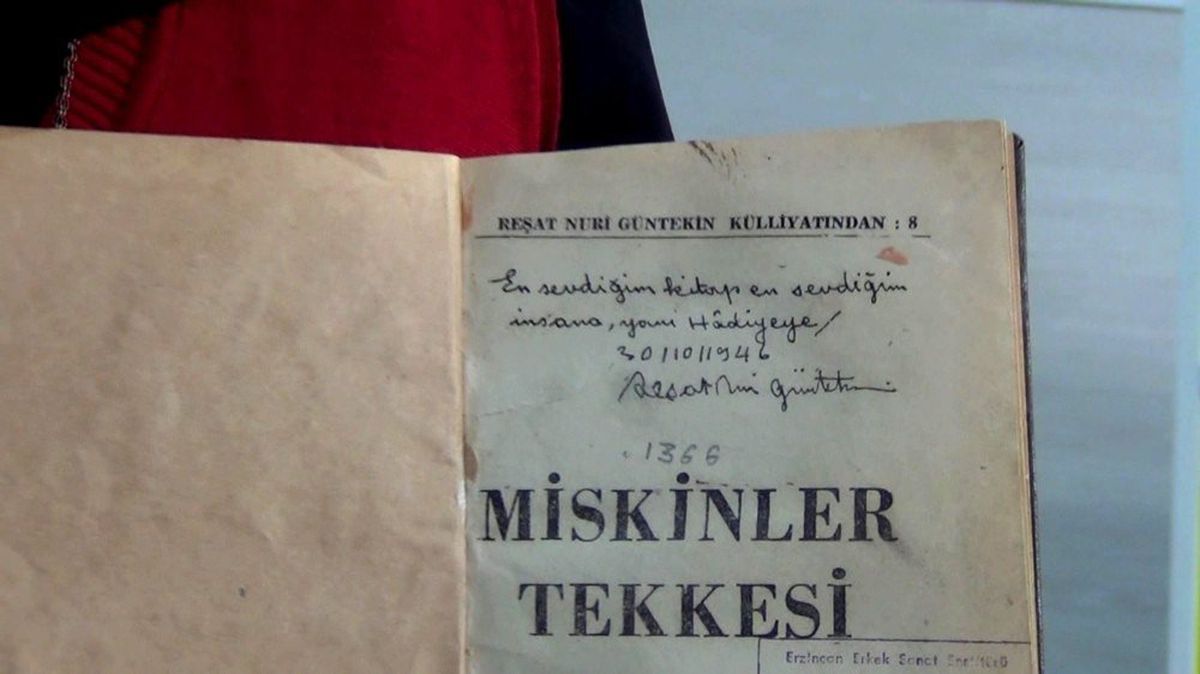 REŞAT NURİ GÜNTEKİN KÜLLİYATINDAN : 8
En sevdiğim kitap en sevdiğim
insana, yani Hâdiyeye/
30/10/1946
Reşat Nuri Güntekin
1366
MİSKİNLER
TEKKESİ
Erzincan Erkek Sanat Enstitüsü